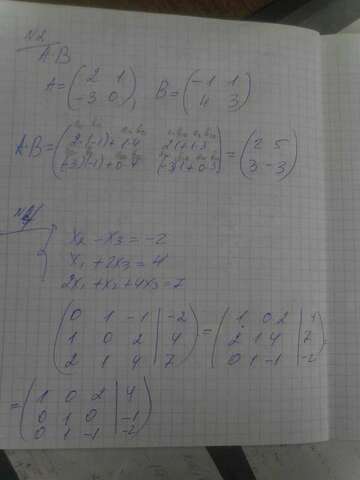 N2
A·B
A = ( 2 1 ), B = ( -1 1 )
( -3 0 ) ( 4 3 )
A·B = ( 2·(-1)+1·4 2·1+1·3 ) = ( 2 5 )
( (-3)(-1)+0·4 (-3)1+0·3 ) ( 3 -3 )
x₂ - x₃ = -2
x₁ + 2x₃ = 4
2x₁ + x₂ + 4x₃ = 7
( 0 1 -1 | -2 ) = ( 1 0 2 | 4 )
( 1 0 2 | 4 ) ( 2 1 4 | 7 )
( 2 1 4 | 7 ) ( 0 1 -1 | -2 )
= ( 1 0 2 | 4 )
( 0 1 0 | -1 )
( 0 1 -1 | -2 )